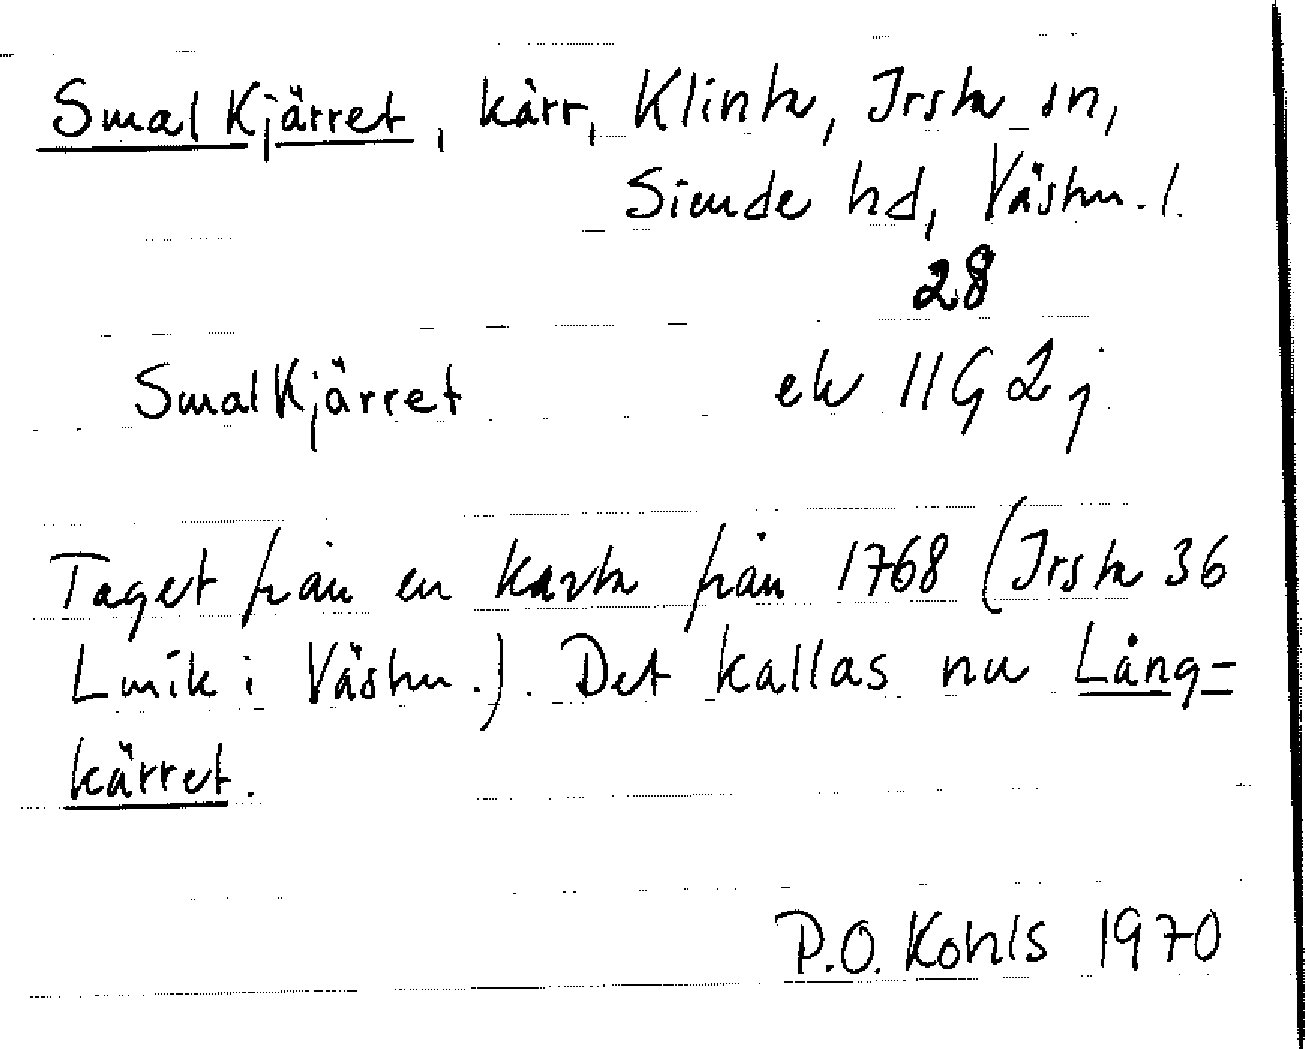 Smal Kjärret, kärr, Klinta, Irsta sn,
Siende hd, Västm. l.
28
Smal Kjärret ek 11G 2j
Taget från en karta från 1768 (Irsta 36
Lmik i Västm.). Det kallas nu Lång-
kärret.
P.O. Kohls 1970